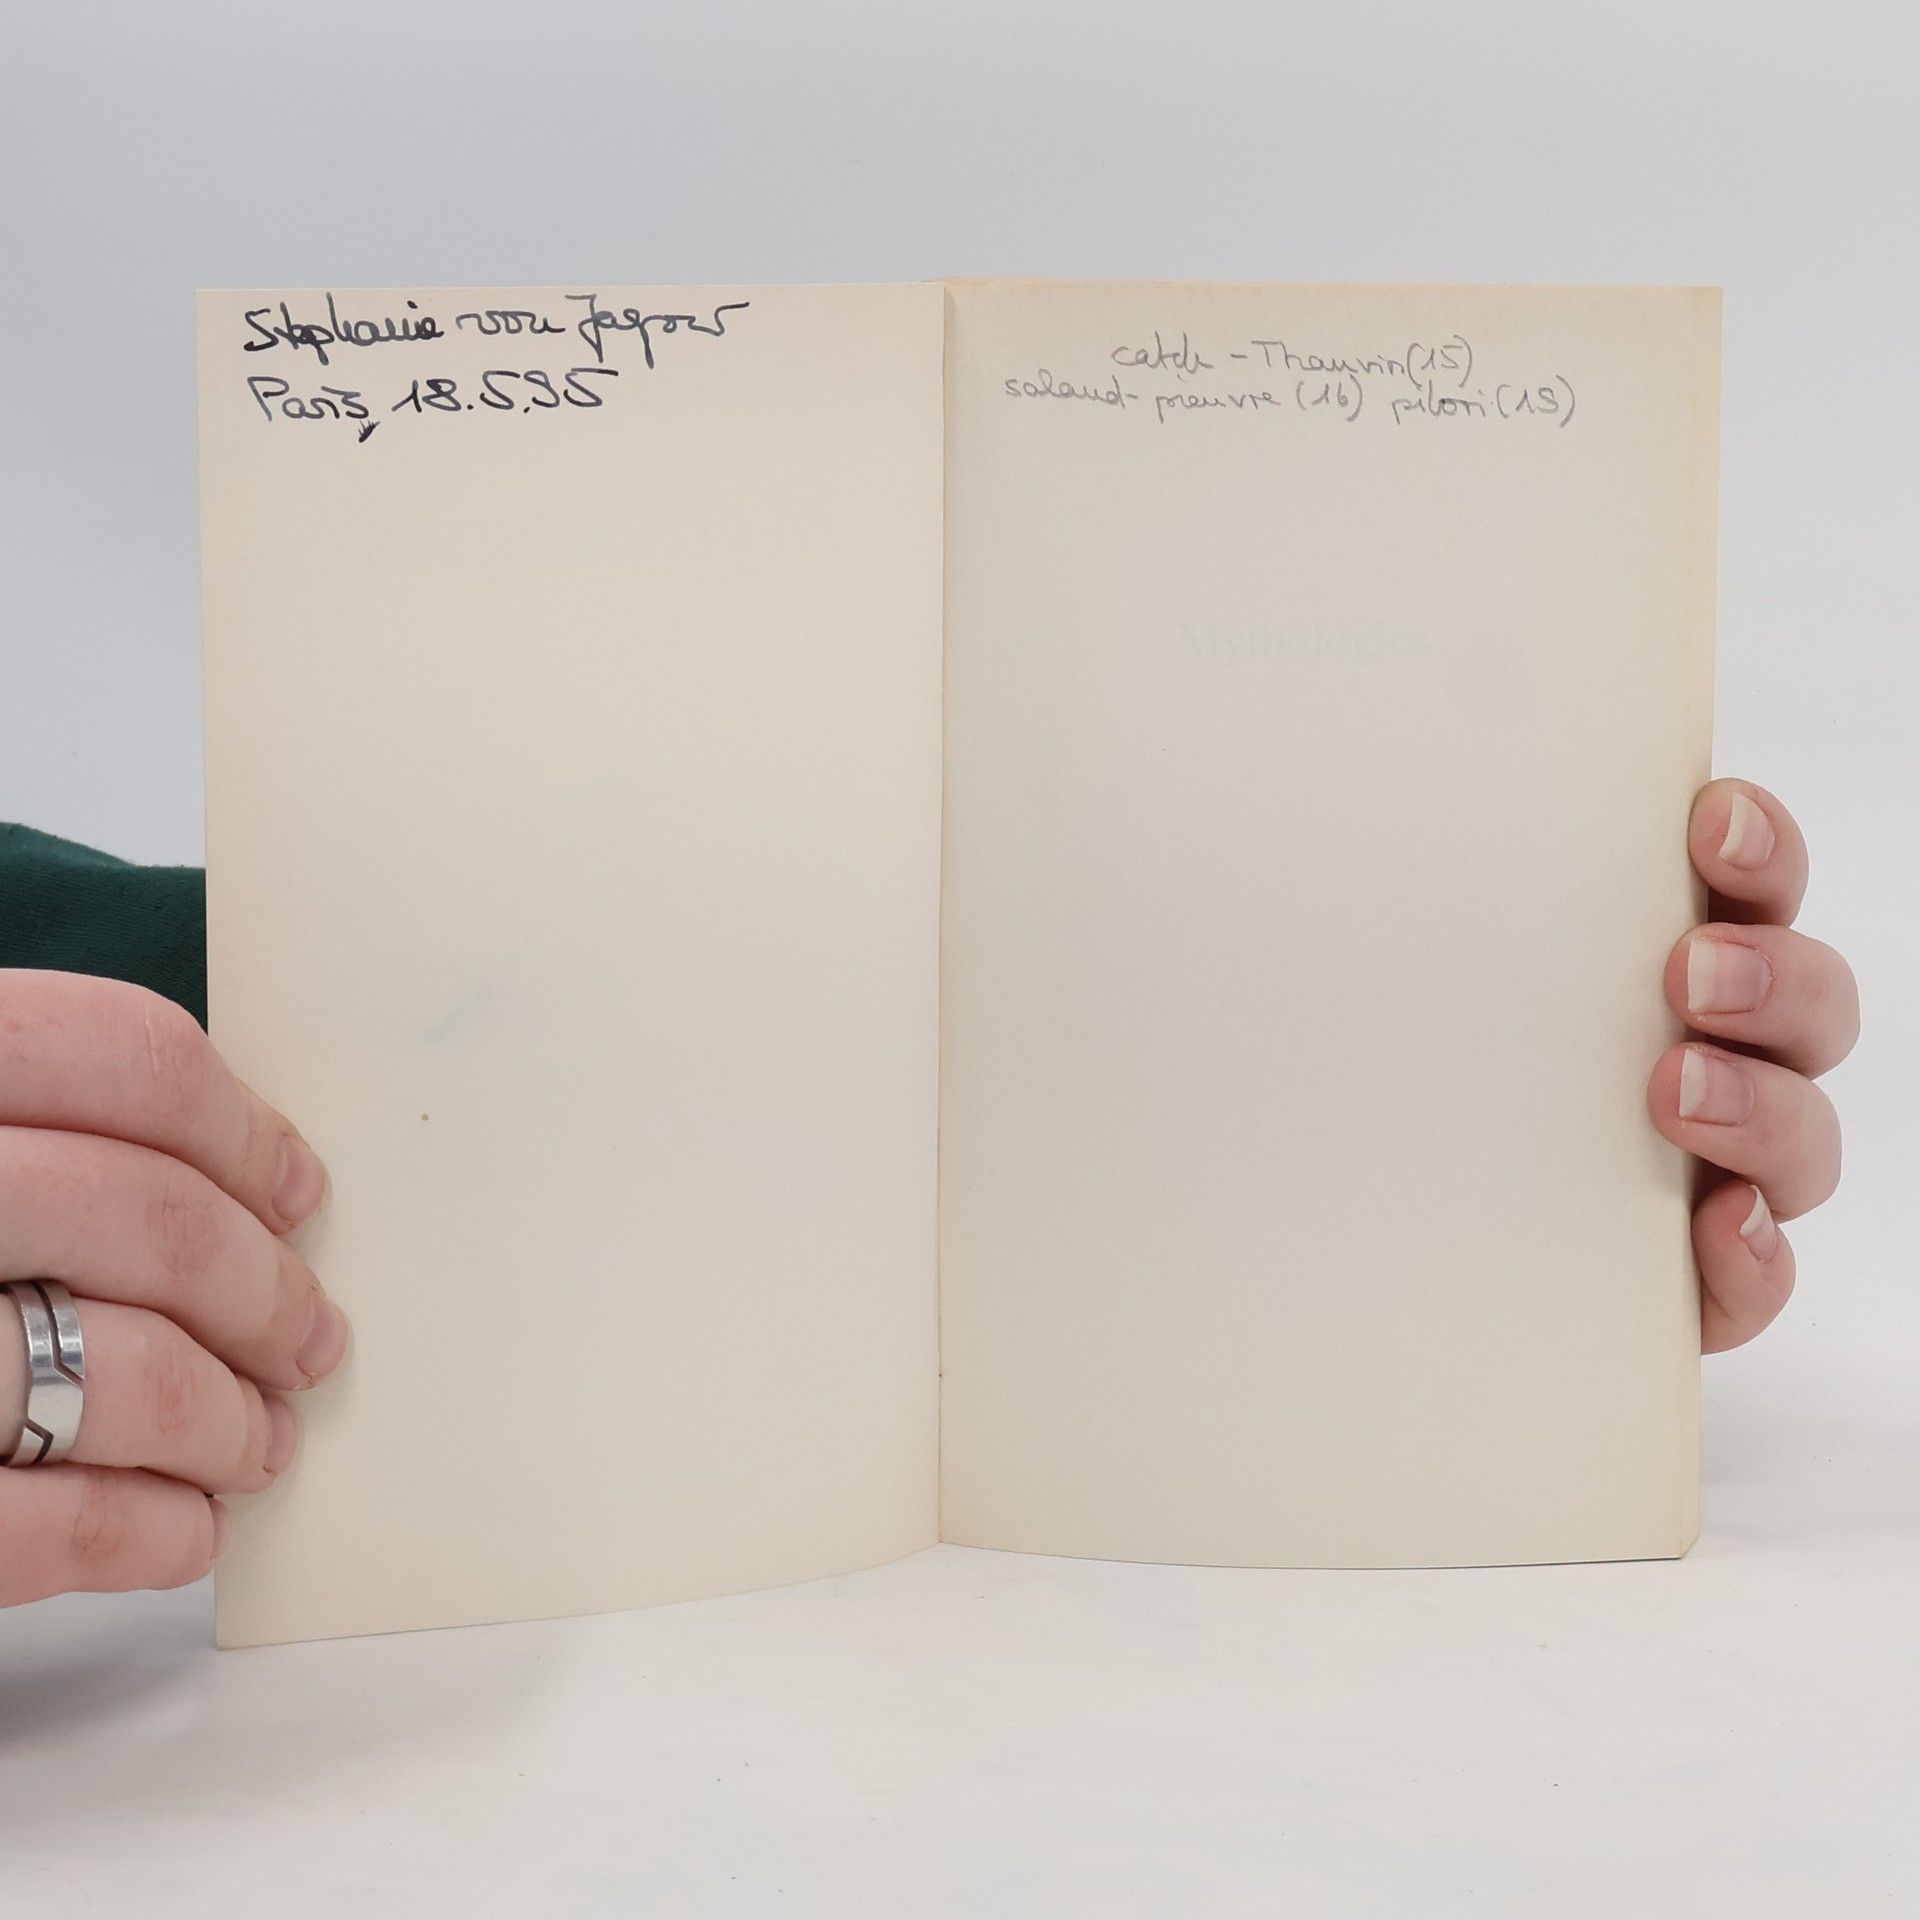 Stephanie von Jagow
Paris, 18.5.95
catch - Thauvin (15)
salaud - pieuvre (16) pilori (19)
Mythologies